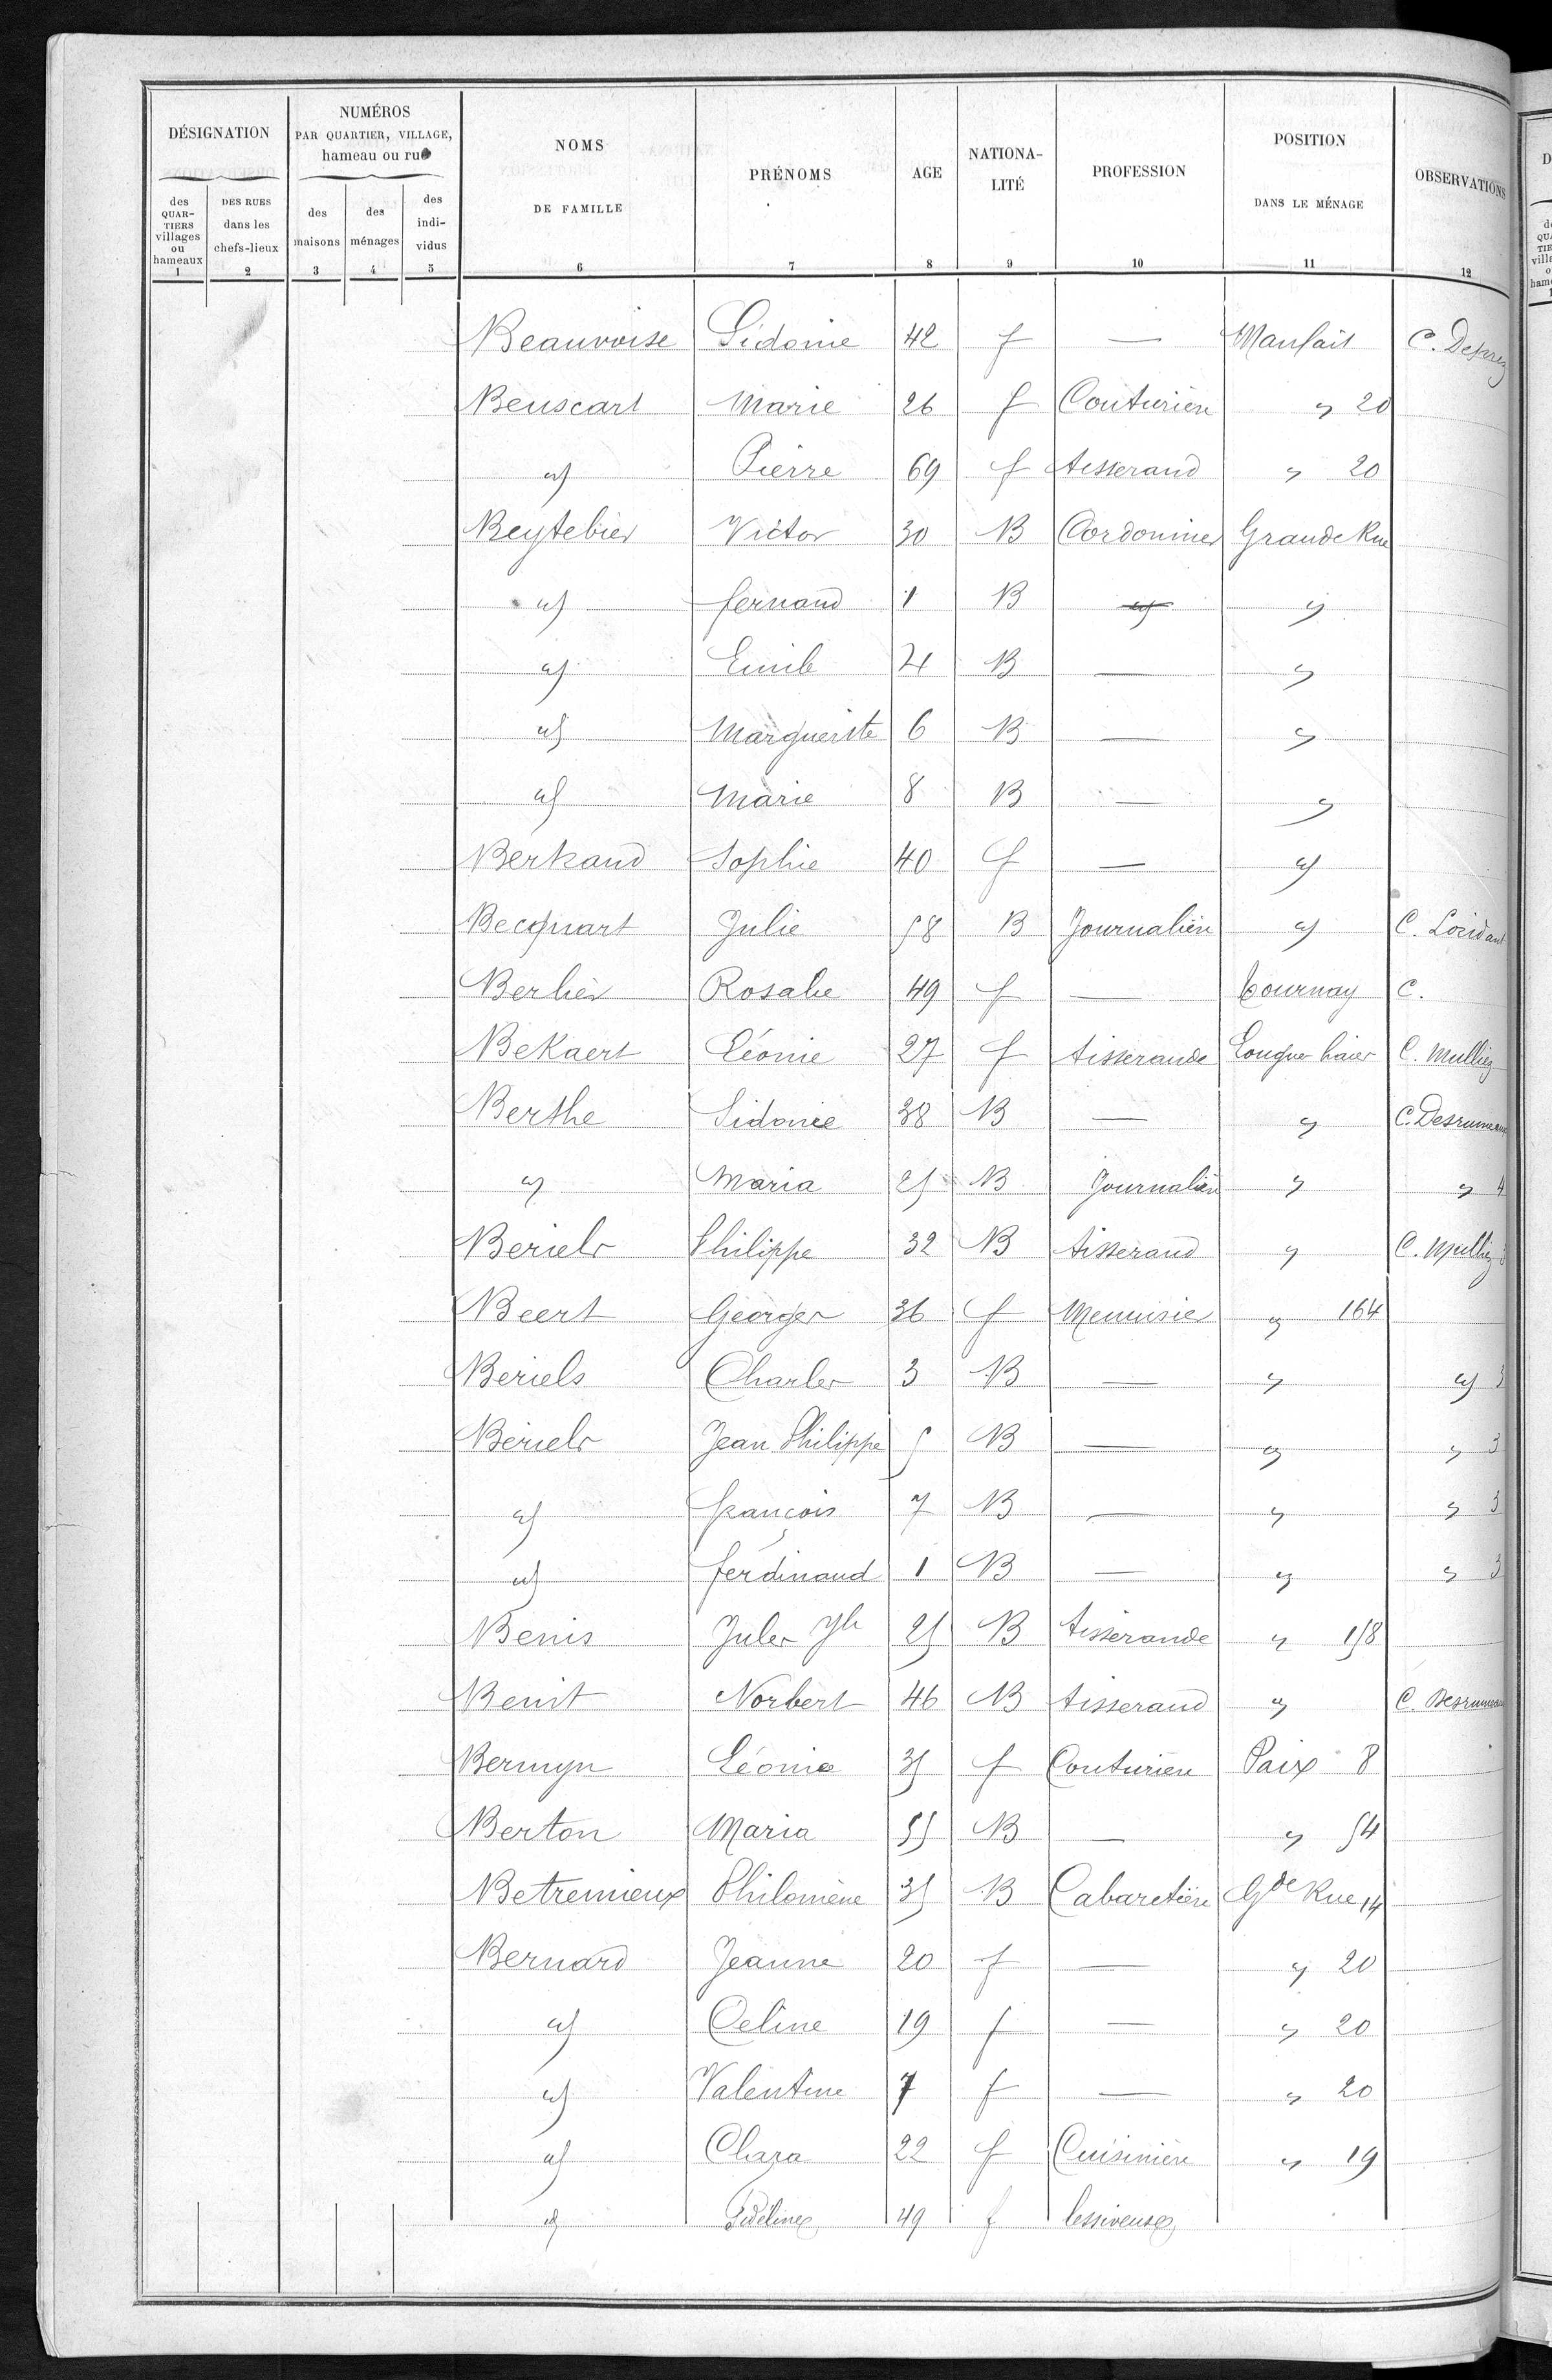 DÉSIGNATION
NUMÉROS
PAR QUARTIER, VILLAGE,
hameau ou rue
NOMS
DE FAMILLE
PRÉNOMS
AGE
NATIONA-
LITÉ
PROFESSION
POSITION
DANS LE MÉNAGE
OBSERVATIONS
des
QUAR-
TIERS
villages
ou
hameaux
DES RUES
dans les
chefs-lieux
des
maisons
des
ménages
des
indi-
vidus
1 2 3 4 5 6 7 8 9 10 11 12
Beauvoise Sidonie 42 f — Manfait C. Desprez
Beuscart Marie 26 f Couturière " 20
" Pierre 69 f tisserand " 20
Beytebier Victor 30 B Cordonnier Grande Rue
" fernand 1 B " "
" Emile 4 B — "
" Marguerite 6 B — "
" Marie 8 B — "
Bertrand Sophie 40 f — "
Becquart Julie 58 B Journalière " C. Loridant
Berlier Rosalie 49 f — Tournay C.
Bekaert Léonie 27 f tisserande Longue haies C. Mulliez
Berthe Sidonie 38 B — " C. Desrumeaux
" Maria 25 B Journalière " " 4
Beriels Philippe 32 B tisserand " C. Mulliez 3
Beert Georges 36 f Menuisier " 164
Beriels Charles 3 B — " " 3
Beriels Jean Philippe 5 B — " " 3
" françois 7 B — " " 3
" ferdinand 1 B — " " 3
Benis Jules Jh 25 B tisserande " 158
Benit Norbert 46 B tisserand " C. Desrumeaux
Bermyn Léonie 35 f Couturière Paix 8
Berton Maria 55 B — " 54
Betremieux Philomène 35 B Cabaretière Gde Rue 14
Bernard Jeanne 20 f — " 20
" Celine 19 f — " 20
" Valentine 7 f — " 20
" Clara 22 f Cuisinière " 19
" Fidéline 49 f lessiveuse